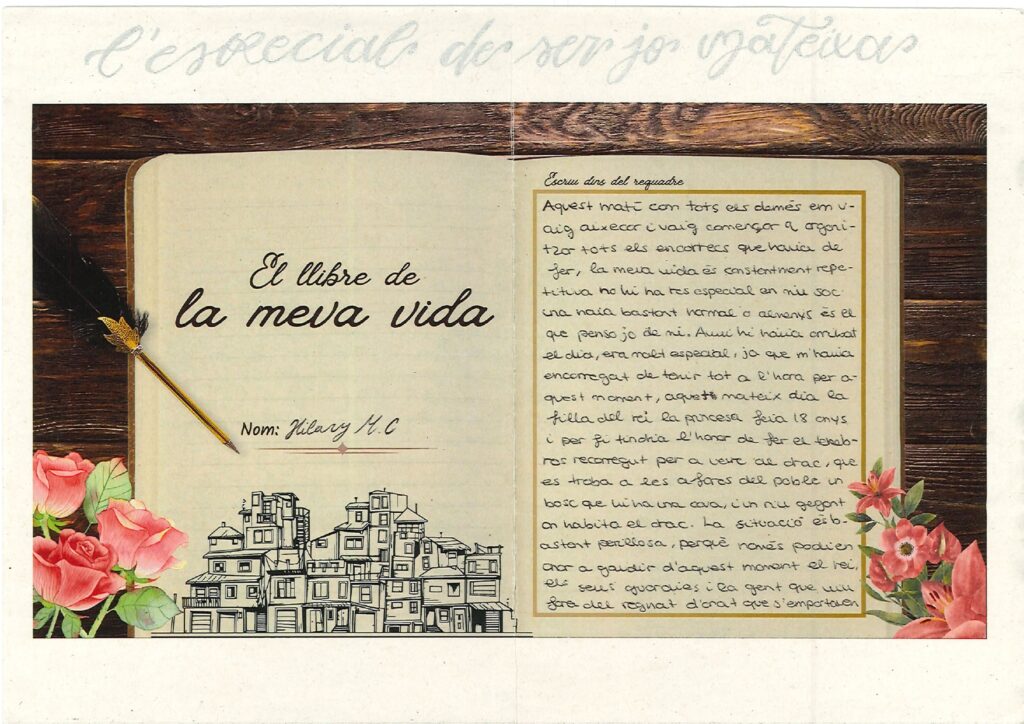 l'especial de ser jo mateixa
El llibre de
la meva vida
Nom: Hilary M.C
Escriu dins del requadre
Aquest matí com tots els demés em v-
aig aixecar i vaig començar a organi-
tzar tots els encarrecs que havia de
fer, la meva vida és constantment repe-
titiva no hi ha res especial en mi soc
una noia bastant normal o almenys és el
que penso jo de mi. Avui hi havia arribat
el dia, era molt especial, ja que m'havia
encarregat de tenir tot a l'hora per a-
quest moment, aquest mateix dia la
filla del rei la princesa feia 18 anys
i per fi tindria l'honor de fer el teneb-
ros recorregut per a veure al drac, que
es troba a les afores del poble un
bosc que hi ha una cova, i un riu gegant
on habita el drac. La situació és b-
astant perillosa, perquè només podien
anar a gaudir d'aquest moment el rei,
els seus guardies i la gent que viu
fora del regnat d'orat que s'emportaven